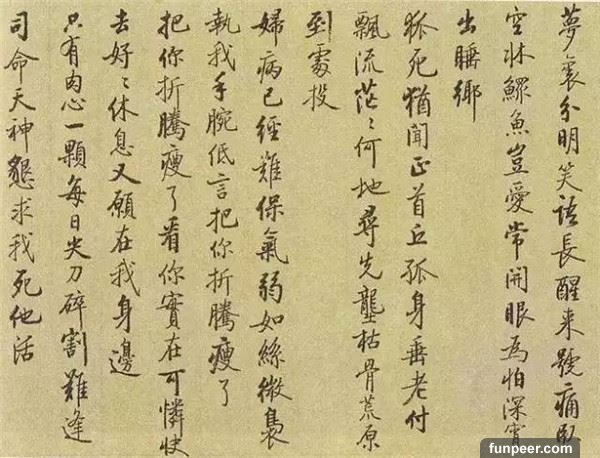 夢裏分明笑語長醒来號痛臥
空牀鰥魚豈愛常開眼為怕深宵
出睡鄉
狐死猶聞正首丘孤身垂老付
飄流茫々何地尋先壟枯骨荒原
到處投
婦病已經難保氣弱如絲微裊
執我手腕低言把你折騰瘦了
把你折騰瘦了看你實在可憐快
去好々休息又願在我身邊
只有肉心一顆每日尖刀碎割難逢
司命天神懇求我死他活
funpeer.com